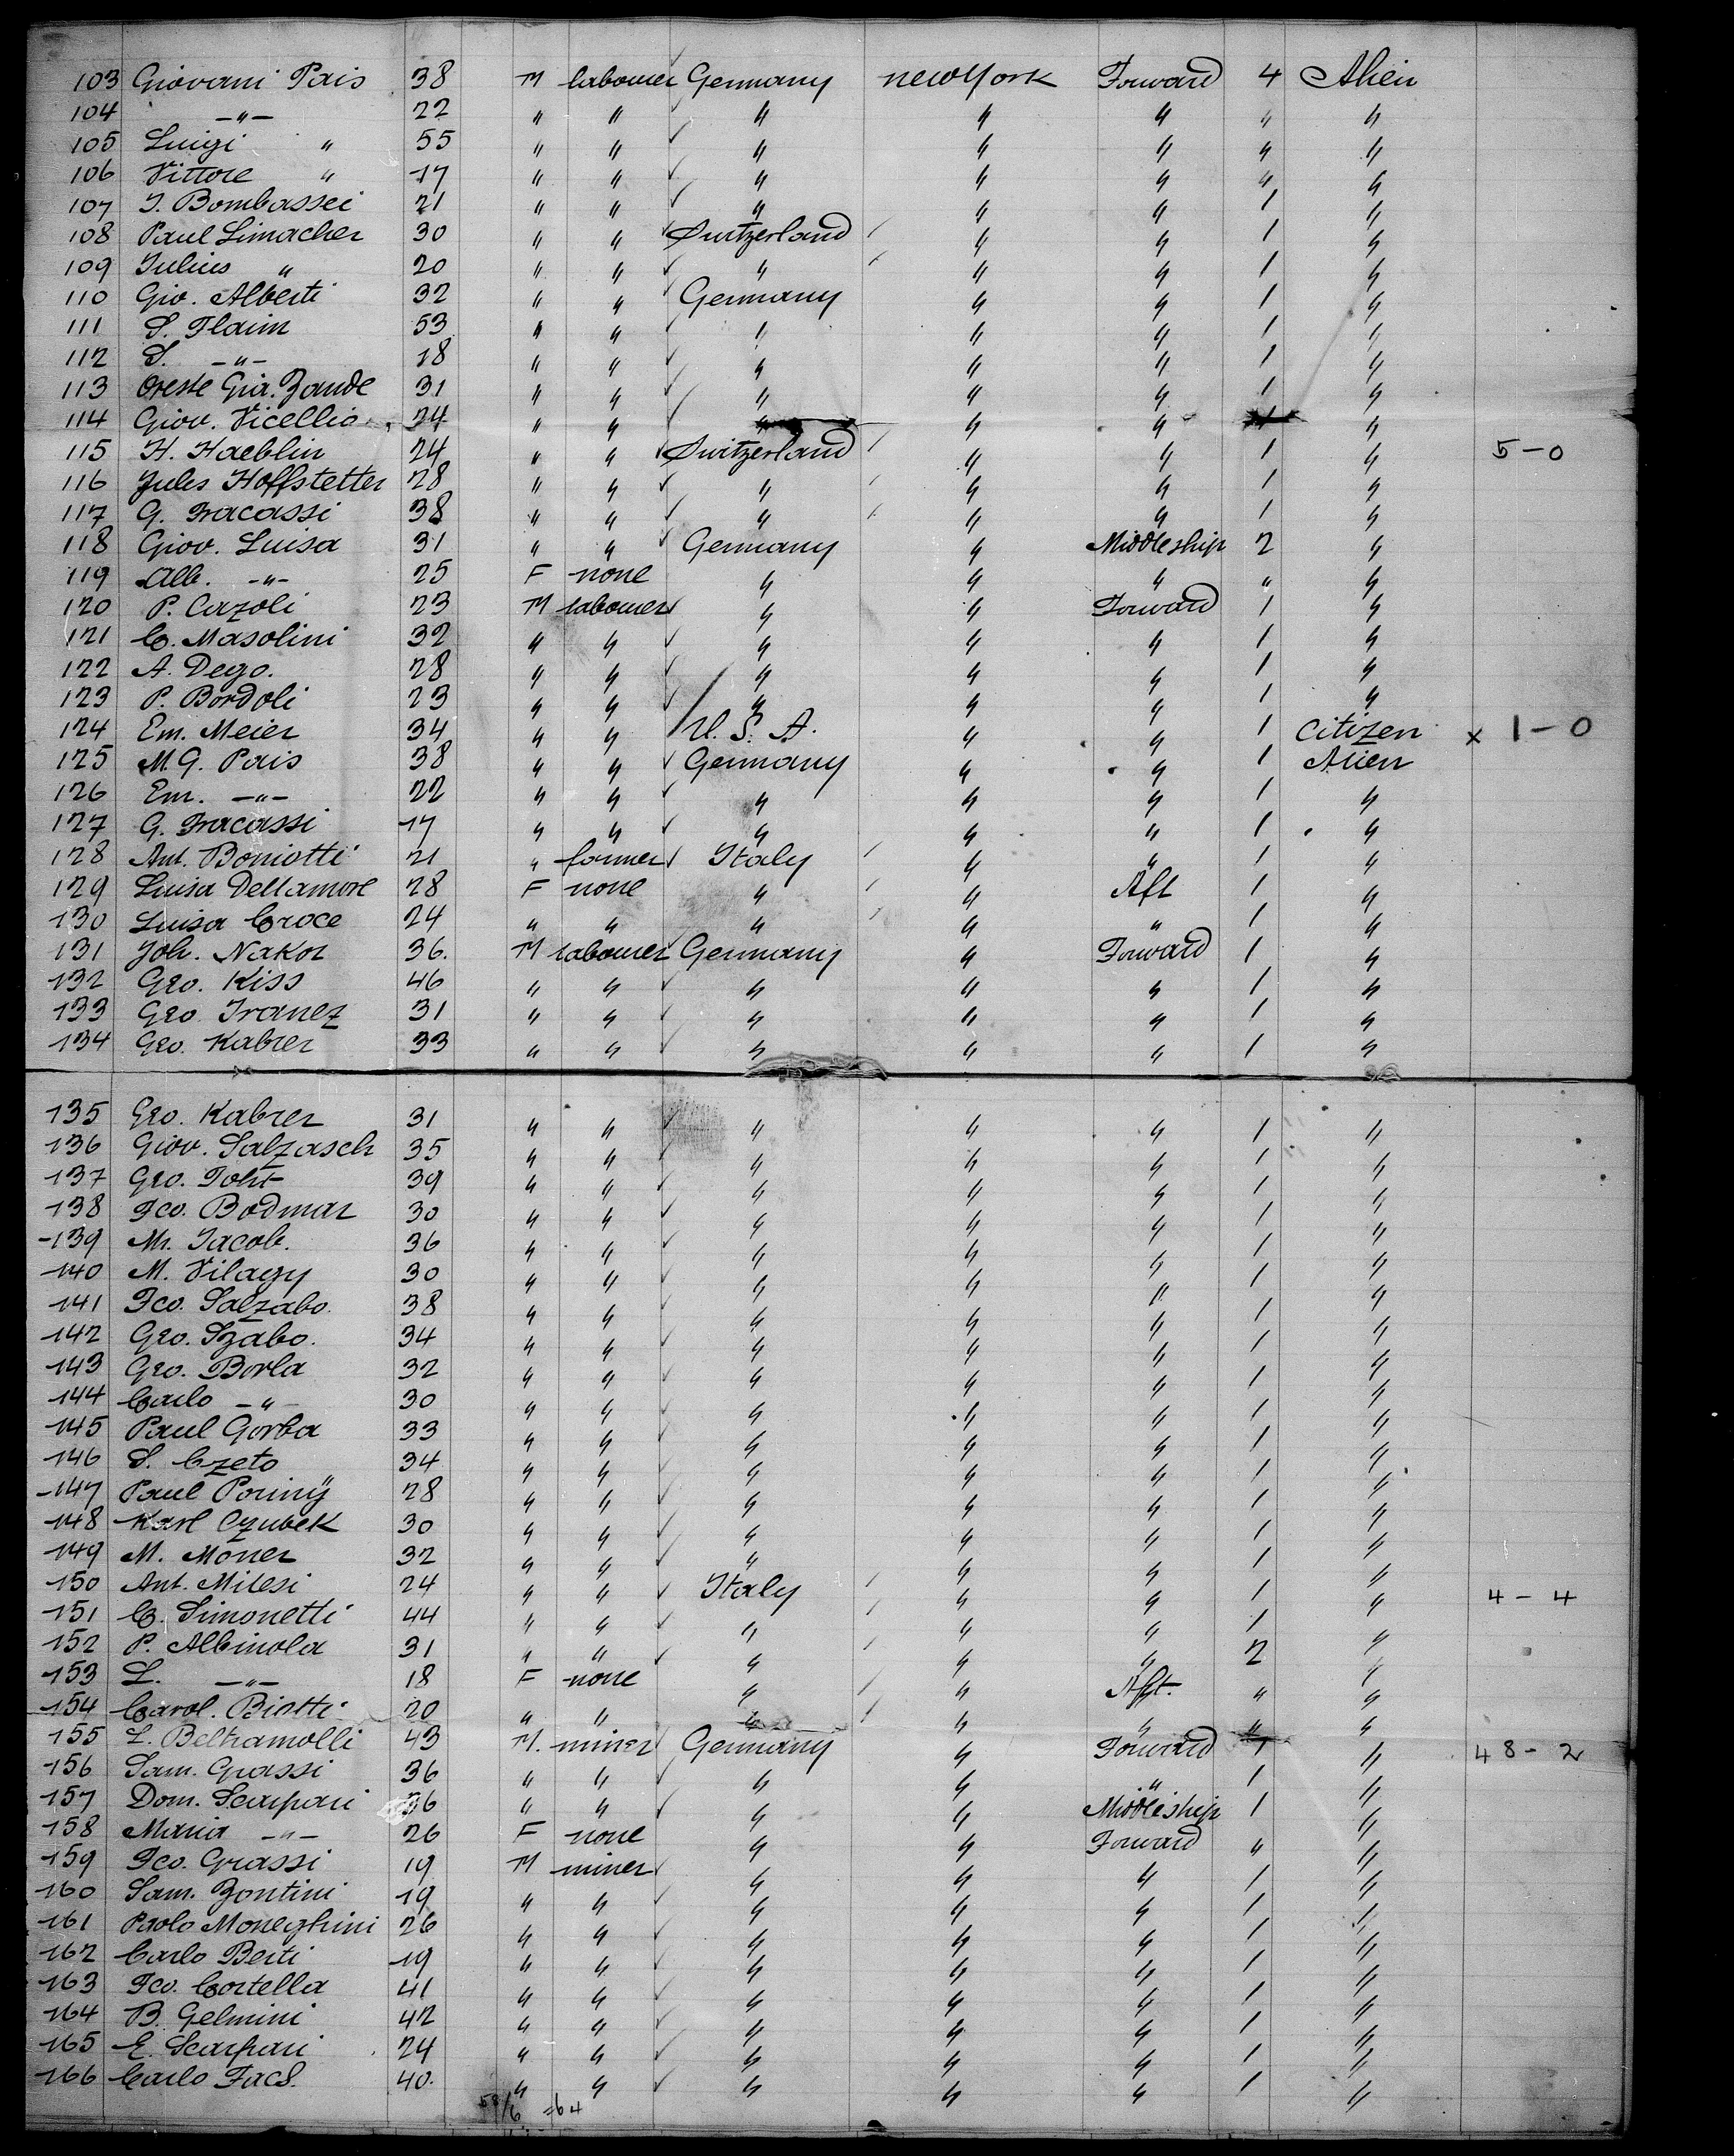 103 Giovani Pais 38 M labourer Germany new York Forward 4 Alien
104 -"- 22 " " " " " " "
105 Luigi " 55 " " " " " " "
106 Vittore " 17 " " " " " " "
107 J. Bombassei 21 " " " " " 1 "
108 Paul Limacher 30 " " Switzerland " " 1 "
109 Julius " 20 " " " " " 1 "
110 Gio. Alberti 32 " " Germany " " 1 "
111 S. Flaim 53 " " " " " 1 "
112 S. -"- 18 " " " " " 1 "
113 Oreste Gia. Zande 31 " " " " " 1 "
114 Giov. Vicellio 24 " " " " " 1 "
115 H. Haeblin 24 " " Switzerland " " 1 " 5-0
116 Jules Hoffstetter 28 " " " " " 1 "
117 G. Fracassi 38 " " " " " 1 "
118 Giov. Luisa 31 " " Germany " Middleship 2 "
119 Alb. -"- 25 F none " " " " "
120 P. Cazoli 23 M labourer " " Forward 1 "
121 C. Masolini 32 " " " " " 1 "
122 A. Dego. 28 " " " " " 1 "
123 P. Bordoli 23 " " " " " 1 "
124 Em. Meier 34 " " U. S. A. " " 1 Citizen x 1-0
125 M. G. Pais 38 " " Germany " " 1 Alien
126 Em. -"- 22 " " " " " 1 "
127 G. Fracassi 17 " " " " " 1 "
128 Ant. Boniotti 21 " farmer Italy " " 1 "
129 Luisa Dellamore 28 F none " " Aft 1 "
130 Luisa Croce 24 " " " " " 1 "
131 Joh. Nakor 36. M labourer Germany " Forward 1 "
132 Geo. Kiss 46 " " " " " 1 "
133 Geo. Iranez 31 " " " " " 1 "
134 Geo. Kabrer 33 " " " " " 1 "
135 Geo. Kabrer 31 " " " " " 1 "
136 Giov. Salzasch 35 " " " " " 1 "
137 Geo. Toht 39 " " " " " 1 "
138 Fco. Bodmar 30 " " " " " 1 "
139 M. Jacob. 36 " " " " " 1 "
140 M. Vilagy 30 " " " " " 1 "
141 Fco. Salzabo. 38 " " " " " 1 "
142 Geo. Szabo. 34 " " " " " 1 "
143 Geo. Borla 32 " " " " " 1 "
144 Carlo -"- 30 " " " " " 1 "
145 Paul Gorba 33 " " " " " 1 "
146 S. Czeto 34 " " " " " 1 "
147 Paul Poriny 28 " " " " " 1 "
148 Karl Czubek 30 " " " " " 1 "
149 M. Moner 32 " " " " " 1 "
150 Ant. Milesi 24 " " Italy " " 1 " 4-4
151 C. Simonetti 44 " " " " " 1 "
152 P. Albinola 31 " " " " " 2 "
153 L. -"- 18 F none " " Aft. " "
154 Carol. Biotti 20 " " " " " " "
155 L. Beltramolli 43 M. miner Germany " Forward 1 " 48-2
156 Sam. Grassi 36 " " " " " 1 "
157 Dom. Scarpari 36 " " " " Middleship 1 "
158 Maria -"- 26 F none " " Forward " "
159 Fco. Grassi 19 M miner " " " 1 "
160 Sam. Zontini 19 " " " " " 1 "
161 Paolo Moneghini 26 " " " " " 1 "
162 Carlo Berti 19 " " " " " 1 "
163 Fco. Cortella 41 " " " " " 1 "
164 B. Gelmini 42 " " " " " 1 "
165 E. Scarpari 24 " " " " " 1 "
166 Carlo Facs. 40. " " " " " 1 "
58/6 =64